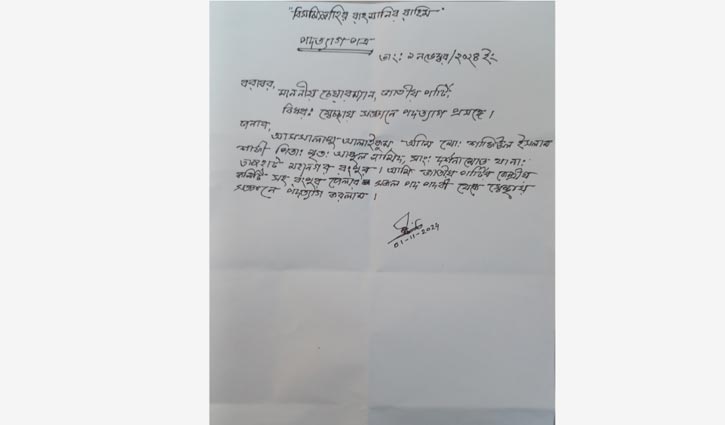 "বিসমিল্লাহির রাহমানির রাহিম"
পদত্যাগ পত্র
তাং: ১ নভেম্বর/২০২৪ ইং
বরাবর,
মাননীয় চেয়ারম্যান, জাতীয় পার্টি।
বিষয়: স্বেচ্ছায় সজ্ঞানে পদত্যাগ প্রসঙ্গে।
জনাব,
আসসালামু আলাইকুম আমি মো: শাফিউল ইসলাম
শাফী পিতা: মৃত: আব্দুল সাং: দর্শনা থানা:
তাজহাট মহানগর রংপুর। আমি জাতীয় পার্টির কেন্দ্রীয়
কমিটি সহ রংপুর জেলার সকল পদ পদবী থেকে স্বেচ্ছায়
সজ্ঞানে পদত্যাগ করলাম।
01-11-2024